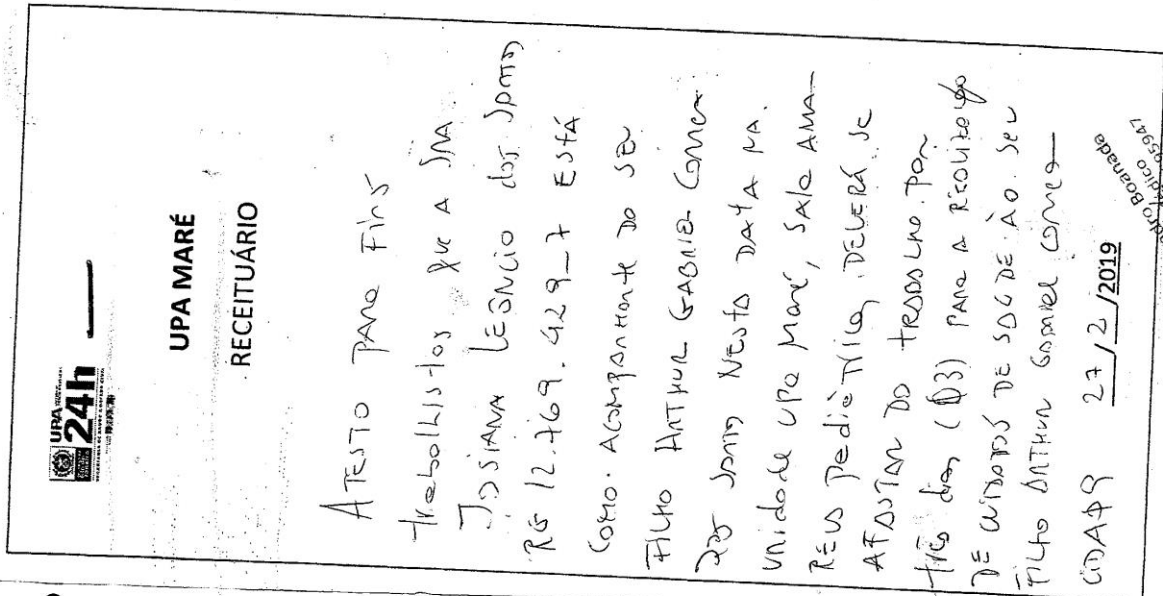 UPA
24h
UPA MARÉ
RECEITUÁRIO
ATESTO PARA FINS
trabalhistas que A SRA
JOSIANA LEONCIO dos Santos
RG 12.769.429-7 ESTÁ
COMO ACOMPANHANTE DO SEU
FILHO ARTHUR GABRIEL Correa
DOS Santos NESTA DATA NA
unidade UPA Maré, SALA AMA-
RELA Pediátrica, DEVERÁ SE
AFASTAR DO TRABALHO POR
três dias (03) PARA A REALIZAÇÃO
DE CUIDADOS DE SAÚDE AO SEU
FILHO ARTHUR GABRIEL Correa
27/2/2019
Boanada
Médico